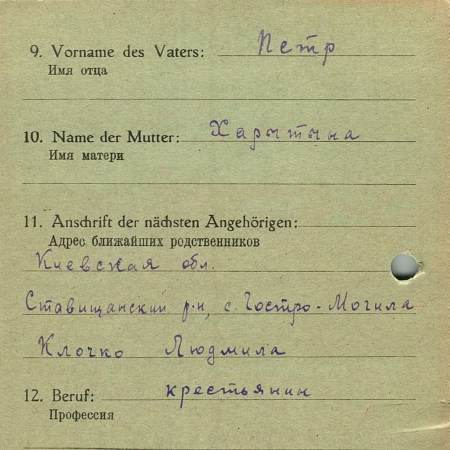 9. Vorname des Vaters: Петр
Имя отца
10. Name der Mutter: Харытына
Имя матери
11. Anschrift der nächsten Angehörigen:
Адрес ближайших родственников
Киевская обл.
Ставищанский р-н, с. Гостро-Могила
Клочко Людмила
12. Beruf: крестьянин
Профессия